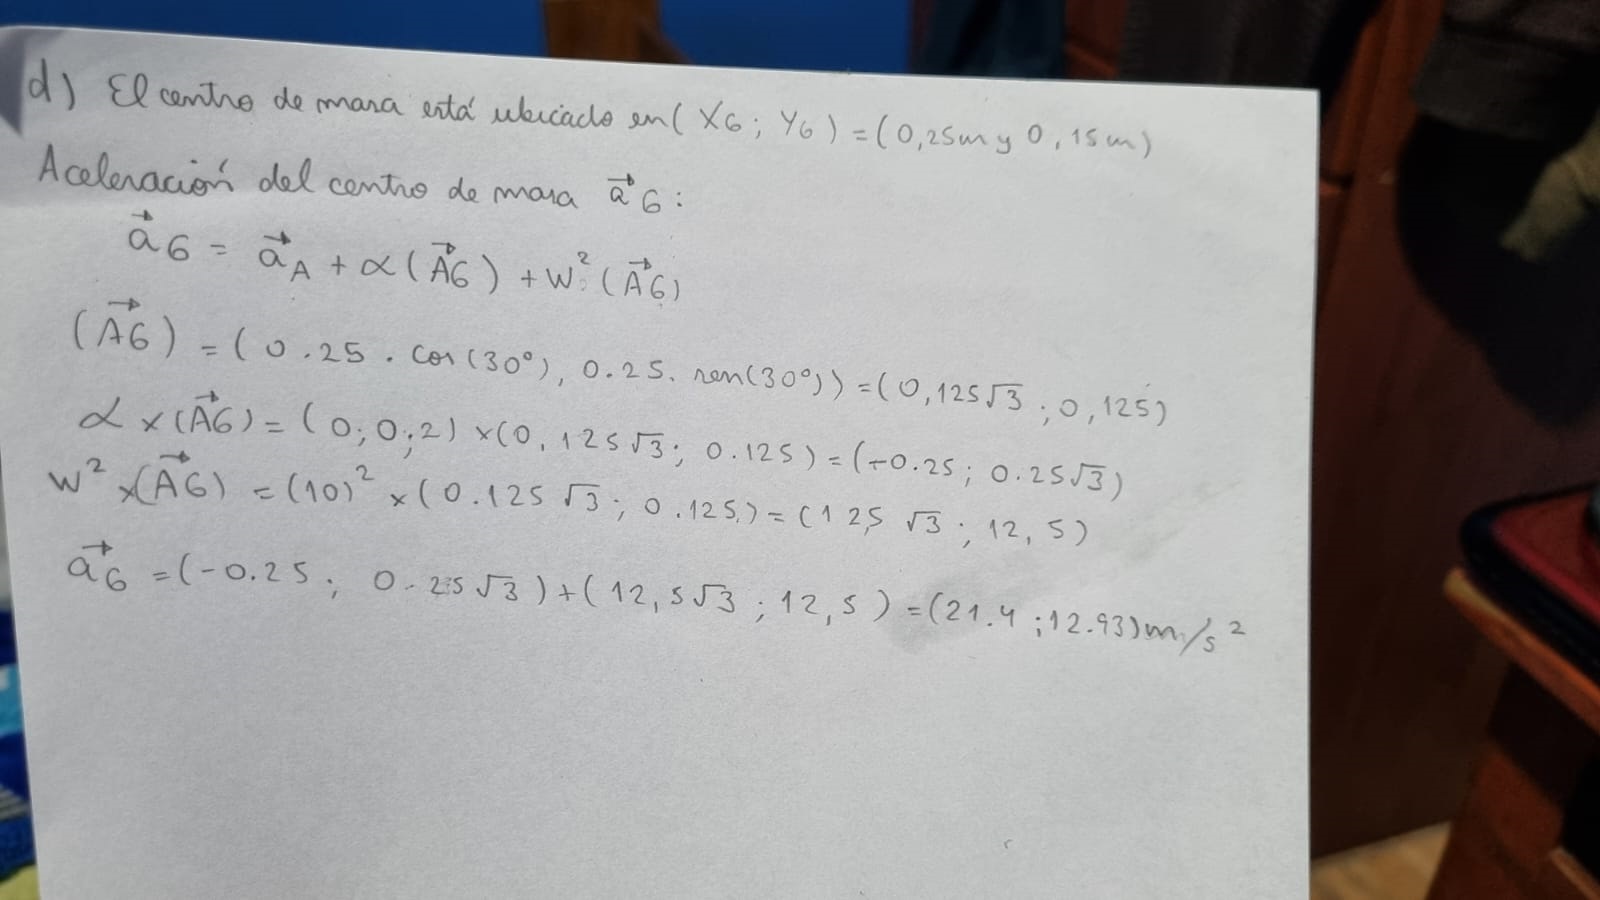 d) El centro de masa está ubicado en (X6; Y6) = (0,25m y 0,15m)
Aceleración del centro de masa a⃗6:
a⃗6 = a⃗A + α(A⃗6) + W²(A⃗6)
(A⃗6) = (0.25 . cos(30°), 0.25. sen(30°)) = (0,125√3 ; 0,125)
α x (A⃗6) = (0;0;2) x (0,125√3; 0.125) = (-0.25; 0.25√3)
W² x (A⃗6) = (10)² x (0.125√3; 0.125) = (12,5 √3; 12,5)
a⃗6 = (-0.25; 0.25√3) + (12,5√3; 12,5) = (21.4 ; 12.93) m/s²